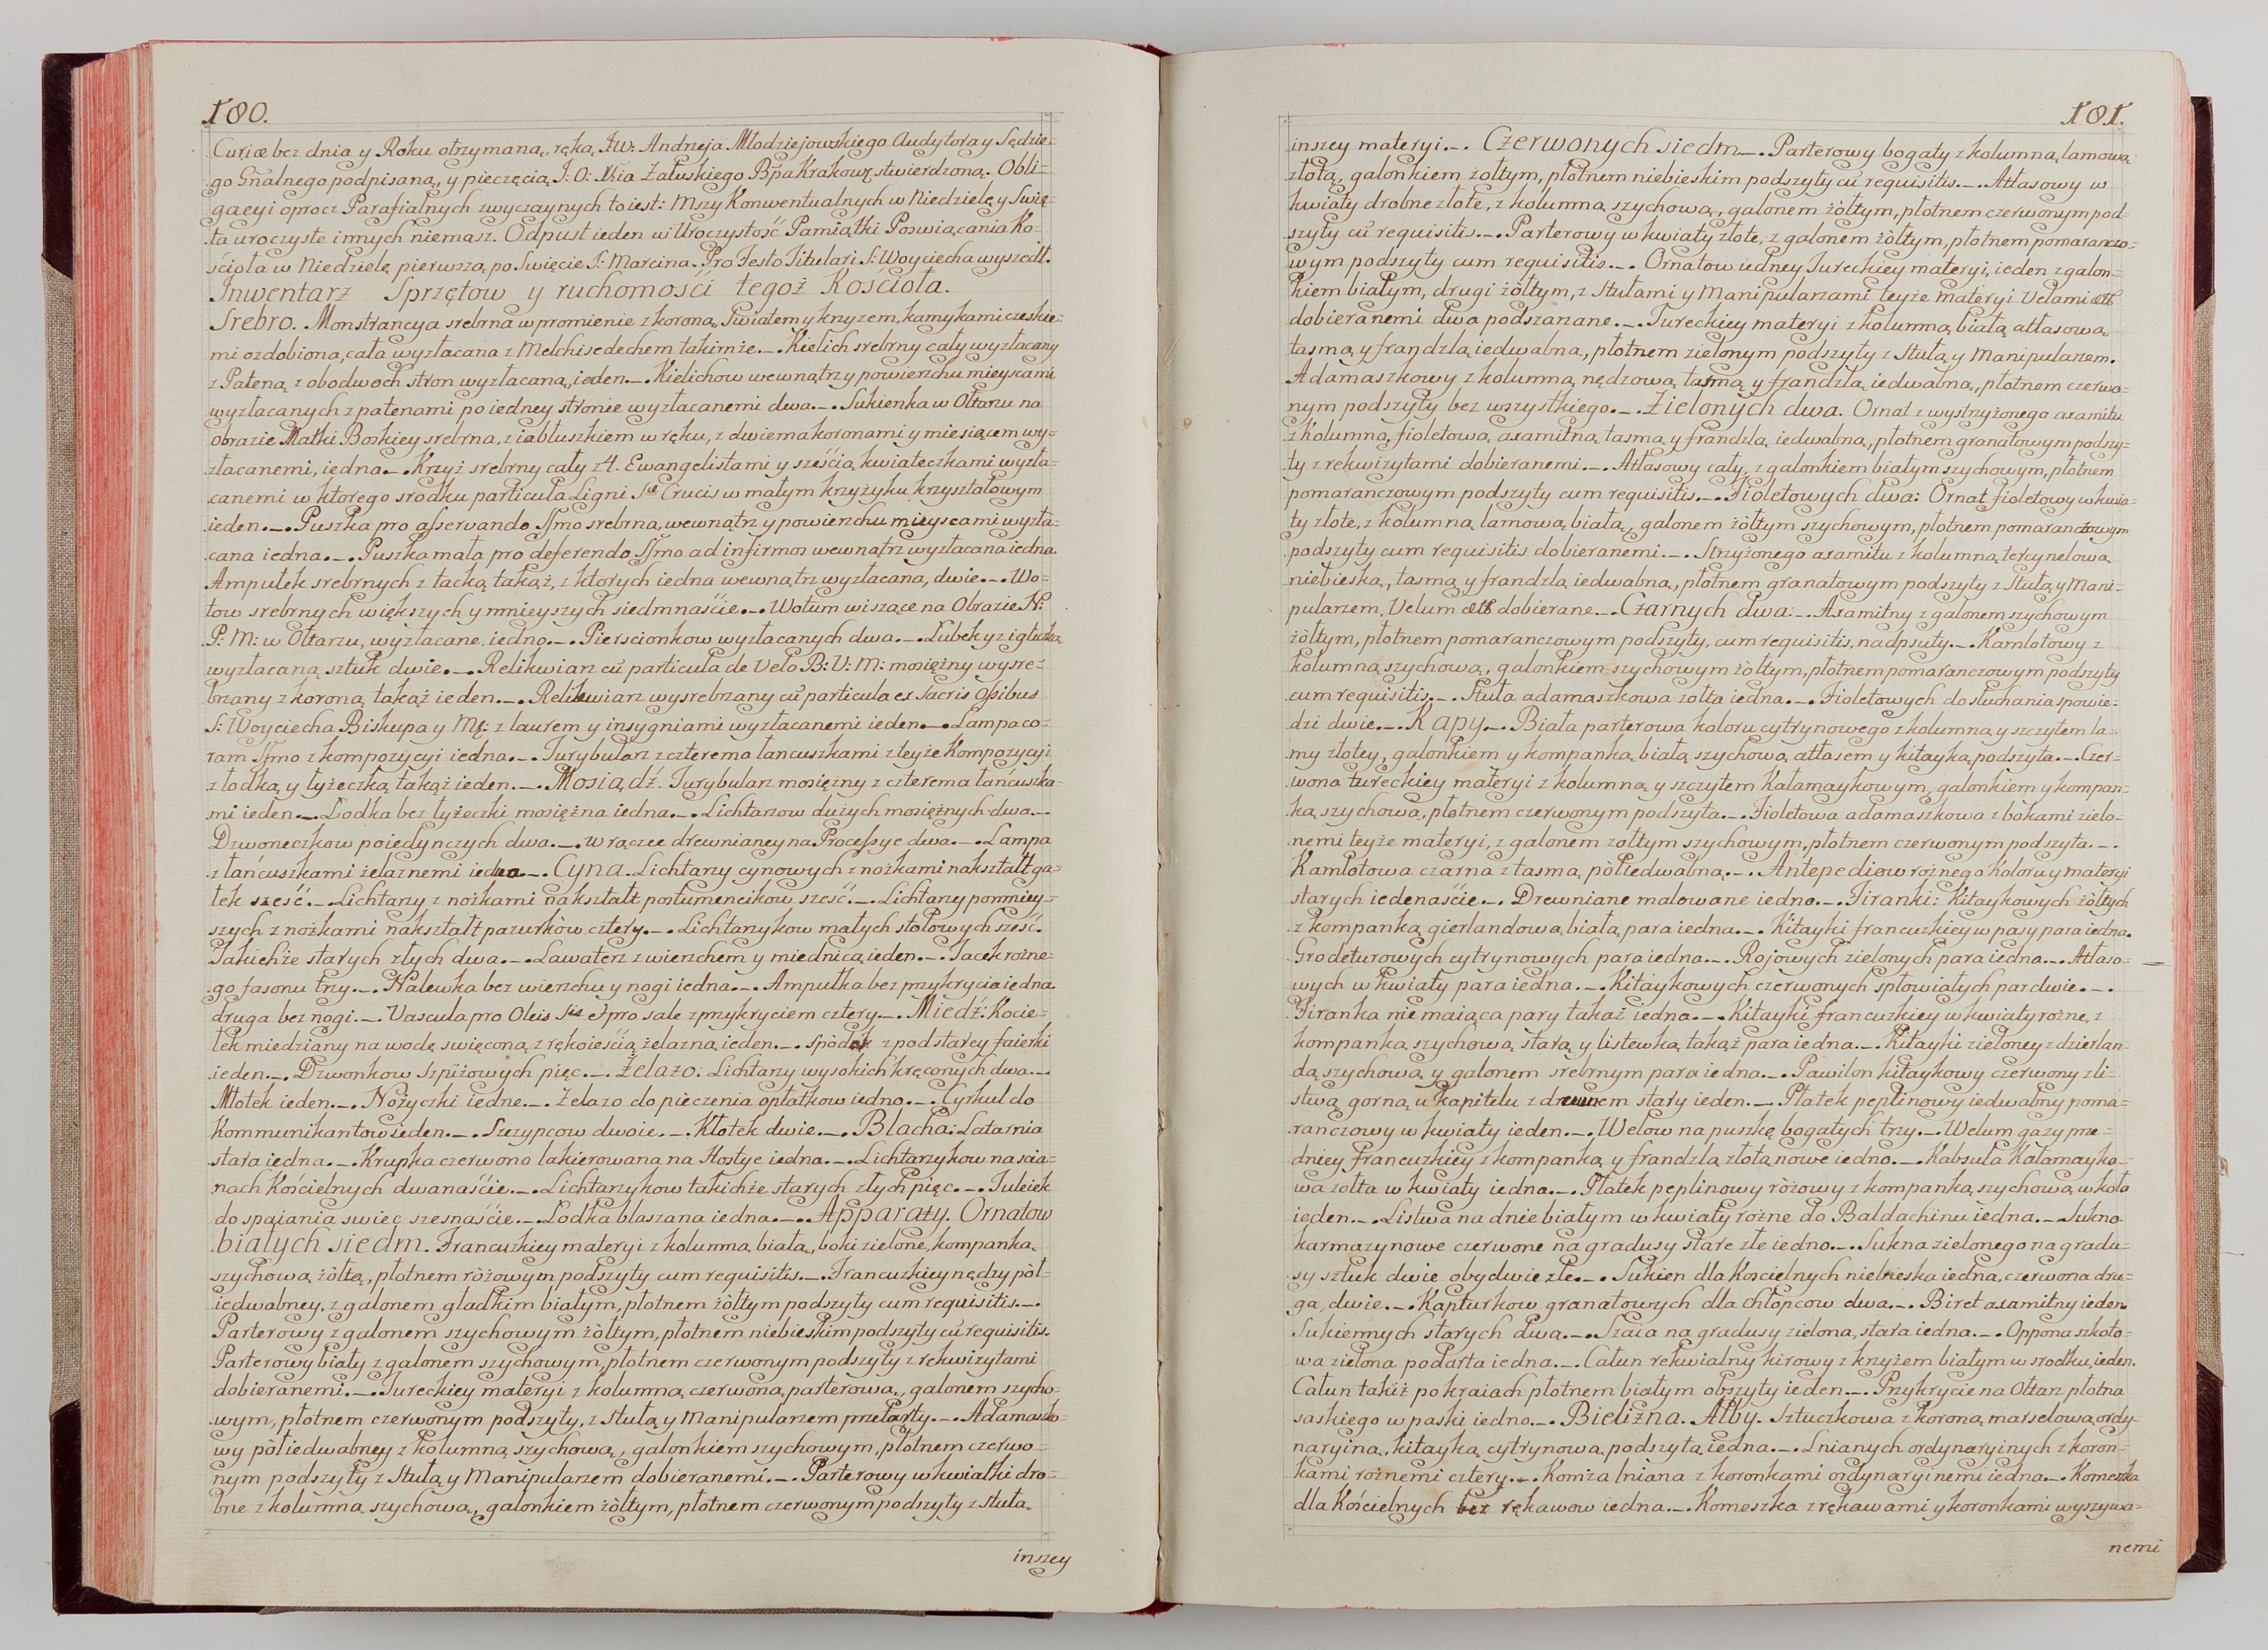 180.
Curiæ bez dnia y Roku otrzymaną, ręką JW: Andrzeja Młodziejowskiego Audytora y Sędzie-
go Gñalnego podpisaną, y pieczęcią J: O: Xcia Załuskiego Bpa Krakowę stwierdzoną. Obli=
gacyi oprocz Parafialnych zwyczaynych to iest: Mszy Konwentualnych w Niedzielę y Swię-
ta uroczyste innych niemasz. Odpust ieden w Uroczystość Pamiątki Poswiącania Ko-
ścioła w Niedzielę pierwszą po Swięcie S: Marcina. Pro Festo Titulari S: Woyciecha wyszedł.
Inwentarz Sprzętow y ruchomości tegoż Kościoła.
Srebro. Monstrancya srebrna w promienie z koroną, Swiatem y krzyzem, kamykami czeskie-
mi ozdobiona, cała wyzłacana z Melchisedechem takimże._. Kielich srebrny cały wyzłacany
z Pateną z obodwoch stron wyzłacaną, ieden._. Kielichow wewnątrz y powierzchu mieyscami
wyzłacanych z patenami po iedney stronie wyzłacanemi dwa._. Sukienka w Ołtarzu na
obrazie Matki Boskiey srebrna, z iabłuszkiem w ręku, z dwiema koronami y miesiącem wy-
złacanemi, iedna._. Krzyż srebrny cały z 4. Ewangelistami y sześcią kwiateczkami wyzła-
canemi w ktorego srodku particula Ligni Stæ Crucis w małym krzyżyku krzyształowym
ieden._. Puszka pro asservando SSmo srebrna, wewnątrz y powierzchu mieyscami wyzła-
cana iedna._. Puszka mała pro deferendo SSmo ad infirmos wewnątrz wyzłacana iedna.
Ampułek srebrnych z tacką takąż, z ktorych iedna wewnątrz wyzłacana, dwie._. Wo-
tow srebrnych większych y mnieyszych siedmnaście._. Wotum wiszące na Obrazie N:
P: M: w Ołtarzu, wyzłacane, iedno._. Pierscionkow wyzłacanych dwa._. Lubek y z igłuszką
wyzłacaną sztuk dwie._. Relikwiarz cũ particula de Velo B: V: M: mosiężny wysre-
brzany z koroną takąż ieden._. Relikwiarz wysrebrzany cũ particula ex Sacris Ossibus
S: Woyciecha Biskupa y Mę: z laurem y insygniami wyzłacanemi ieden._. Lampa co-
ram SSmo z kompozycyi iedna._. Turybularz z czterema łancuszkami z teyże Kompozycyi
z łodką y łyżeczką takąż ieden._. Mosiądź. Turybularz mosiężny z czterema łańcuszka-
mi ieden._. Łodka bez łyżeczki mosiężna iedna._. Lichtarzow dużych mosiężnych dwa._.
Dzwoneczkow poiedynczych dwa._. w rączce drewnianey na Processye dwa._. Lampa
z łańcuszkami żelaznemi iedna._. Cyna. Lichtarzy cynowych z nożkami nakształt ga-
łek sześć._. Lichtarzy z nożkami nakształt postumencikow sześć._. Lichtarzy pomniey-
szych z nożkami nakształt pazurkòw cztery._. Lichtarzykow małych stołowych sześć.
Takichże starych złych dwa._. Lawaterz z wierzchem y miednicą ieden._. Tacek rożne-
go fasonu trzy._. Nalewka bez wierzchu y nogi iedna._. Ampułka bez przykrycia iedna.
druga bez nogi._. Vascula pro Oleis Stis & pro sale z przykryciem cztery._. Miedź: Kocie-
łek miedziany na wodę swięconą z rękoieścią żelazną ieden._. Spòdek z pod starey faierki
ieden._. Dzwonkow Szpiżowych pięc._. Żelazo: Lichtarzy wysokich kręconych dwa._.
Młotek ieden._. Nożyczki iedne._. Żelazo do pieczenia opłatkow iedno._. Cyrkul do
Kommunikantow ieden._. Szczypcow dwoie._. Kłotek dwie._. Blacha: Latarnia
stara iedna._. Krupka czerwono lakierowana na Hostye iedna._. Lichtarzykow na scia-
nach Kościelnych dwanaście._. Lichtarzykow takichże starych złych pięc._. Tuleiek
do spaiania swiec szesnaście._. Łodka blaszana iedna._. Apparaty. Ornatow
białych siedm. Francuzkiey materyi z kolumną białą, boki zielone, kompanką
szychową żòłtą, płotnem ròżowym podszyty cum requisitis._. Francuzkiey nędzy pòł-
iedwabney, z galonem gładkim białym, płotnem żòłtym podszyty cum requisitis._.
Parterowy z galonem szychowym żòłtym, płotnem niebieskim podszyty cũ requisitis.
Parterowy biały z galonem szychowym, płotnem czerwonym podszyty z rekwizytami
dobieranemi._. Tureckiey materyi z kolumną czerwoną parterową, galonem szycho-
wym, płotnem czerwonym podszyty, z Stułą y Manipularzem przetarty._. Adamaszko-
wy pòłiedwabney z kolumną szychową, galonkiem szychowym, płotnem czerwo-
nym podszyty z Stułą y Manipularzem dobieranemi._. Parterowy w kwiatki dro-
bne z kolumną szychową, galonkiem żòłtym, płotnem czerwonym podszyty z stułą
inszey
181.
inszey materyi._. Czerwonych siedm._. Parterowy bogaty z kolumną lamową
złotą, galonkiem żołtym, płotnem niebieskim podszyty cũ requisitis._. Atłasowy w
kwiaty drobne złote, z kolumną szychową, galonem żòłtym, płotnem czerwonym pod-
szyty cũ requisitis._. Parterowy w kwiaty złote, z galonem żòłtym, płotnem pomaranczo-
wym podszyty cum requisitis._. Ornatow iedney Tureckiey materyi, ieden z galon-
kiem białym, drugi żòłtym, z Stułami y Manipularzami teyże materyi Velami
dobieranemi dwa podszarzane._. Tureckiey materyi z kolumną białą atłasową,
tasmą y frandzlą iedwabną, płotnem zielonym podszyty z Stułą y Manipularzem.
Adamaszkowy z kolumną nędzową tasmą y frandzlą iedwabną, płotnem czerwo-
nym podszyty bez wszystkiego._. Zielonych dwa. Ornat z wystrzyżonego axamitu
z kolumną fioletową axamitną tasmą y frandzlą iedwabną, płotnem granatowym podszy-
ty z rekwizytami dobieranemi._. Atłasowy cały, z galonkiem białym szychowym, płotnem
pomaranczowym podszyty cum requisitis._. Fioletowych dwa: Ornat fioletowy w kwia-
ty złote, z kolumną lamową białą, galonem żòłtym szychowym, płotnem pomaranczowym
podszyty cum requisitis dobieranemi._. Strzyżonego axamitu z kolumną tercynelową
niebieską, tasmą y frandzlą iedwabną, płotnem granatowym podszyty z Stułą y Mani-
pularzem, Velum dobierane._. Czarnych dwa._. Axamitny z galonem szychowym
żòłtym, płotnem pomaranczowym podszyty, cum requisitis, nadpsuty._. Kamlotowy z
kolumną szychową, galonkiem szychowym żòłtym, płotnem pomaranczowym podszyty
cum requisitis._. Stuła adamaszkowa żołta iedna._. Fioletowych do słuchania spowie-
dzi dwie._. Kapy._. Biała parterowa koloru cytrynowego z kolumną y szczytem la-
my złotey, galonkiem y kompanką białą szychową, atłasem y kitayką podszyta._. Czer-
wona tureckiey materyi z kolumną y szczytem Kałamaykowym, galonkiem y kompan-
ką szychową, płotnem czerwonym podszyta._. Fioletowa adamaszkowa z bokami zielo-
nemi teyże materyi, z galonem żołtym szychowym, płotnem czerwonym podszyta._.
Kamlotowa czarna z tasmą pòłiedwabną._. Antepediow rożnego Koloru y materyi
starych iedenaście._. Drewniane malowane iedno._. Firanki: Kitaykowych żòłtych
z kompanką gierlandową białą para iedna._. Kitayki francuzkiey w pasy para iedna.
Grodeturowych cytrynowych para iedna._. Rojowych zielonych para iedna._. Atłaso-
wych w kwiaty para iedna._. Kitaykowych czerwonych spłowiałych par dwie._.
Firanka nie maiąca pary takaż iedna._. Kitayki francuzkiey w kwiaty rożne, z
kompanką szychową starą y listewką takąż para iedna._. Kitayki zieloney z dzierlan-
dą szychową y galonem srebrnym para iedna._. Pawilon kitaykowy czerwony z li-
stwą gorną u kapitelu z drewnem stary ieden._. Płatek peplinowy iedwabny poma-
ranczowy w kwiaty ieden._. Welow na puszkę bogatych trzy._. Welum gazy prze-
dniey francuzkiey z kompanką y frandzlą złotą nowe iedno._. Kabsuła Kałamayko-
wa żołta w kwiaty iedna._. Płatek peplinowy ròżowy z kompanką szychową w koło
ieden._. Listwa na dnie białym w kwiaty rożne do Baldachinu iedna._. Sukno
karmazynowe czerwone na gradusy stare złe iedno._. Sukna zielonego na gradu-
sy sztuk dwie obydwie złe._. Sukien dla Koscielnych niebieska iedna, czerwona dru-
ga, dwie._. Kapturkow granatowych dla chłopcow dwa._. Biret axamitny ieden
Sukiennych starych dwa._. Szaia na gradusy zielona, stara iedna._. Oppona szkoto-
wa zielona podarta iedna._. Całun rekwialny kirowy z krzyżem białym w srodku, ieden.
Całun takiż po kraiach płotnem białym obszyty ieden._. Przykrycie na Ołtarz płotna
saskiego w paski iedno._. Bielizna. Alby. Sztuczkowa z koroną marselową ordy-
naryiną, kitayką cytrynową podszyta iedna._. Lnianych ordynaryinych z koron-
kami rożnemi cztery._. Komża lniana z koronkami ordynaryinemi iedna._. Komeszka
dla Kościelnych bez rękawow iedna._. Komeszka z rękawami y koronkami wyszywa-
nemi